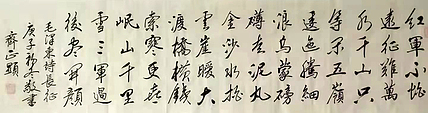 紅軍不怕
遠征難萬
水千山只
等闲五嶺
逶迤騰細
浪烏蒙磅
礴走泥丸
金沙水拍
雲崖暖大
渡橋橫鐵
索寒更喜
岷山千里
雪三軍過
後尽開顔
毛澤東詩長征
庚子初冬敬書